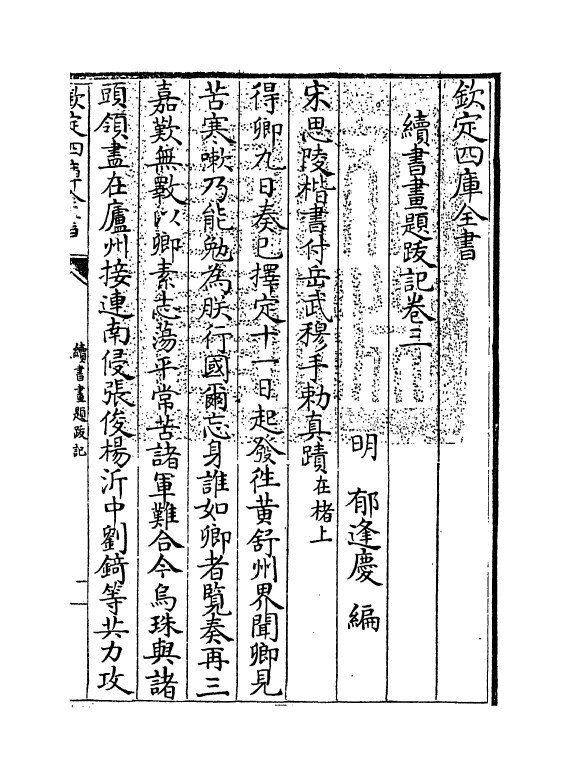 欽定四庫全書
續書畫題跋記卷三
明 郁逢慶 編
宋思陵楷書付岳武穆手勅真蹟在楮上
得卿九日奏已擇定十一日起發徃黄舒州界聞卿見
苦寒嗽乃能勉為朕行國爾忘身誰如卿者覽奏再三
嘉歎無斁以卿素志蕩平常苦諸軍難合今烏珠與諸
頭領盡在廬州接連南侵張俊楊沂中劉錡等共力攻
欽定四庫全書
續書畫題跋記
一